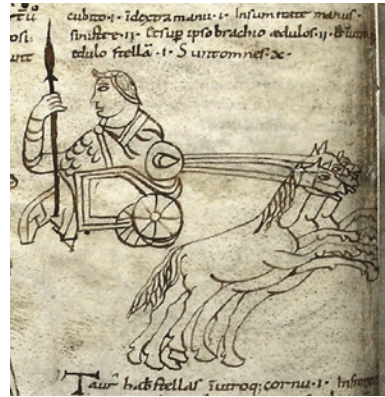 cubito · i · ĩ dextra manu · i · In sumitate manus ·
sinistre · ii · Et sup ipso brachio ędulos · ii ·
ędulo stellã · i · Sunt omnes · x ·
Taur' hab& stellas ĩ utroq; cornu · i · In fron